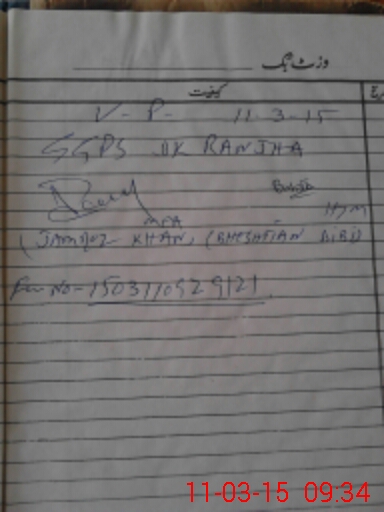 وزٹ بک
کیفیت
V-P- 11-3-15
GGPS DK RANJHA
H/M
MEA
(JAMROZ KHAN) (BHESHTIAN BIBI)
No- 1503110929121
11-03-15 09:34